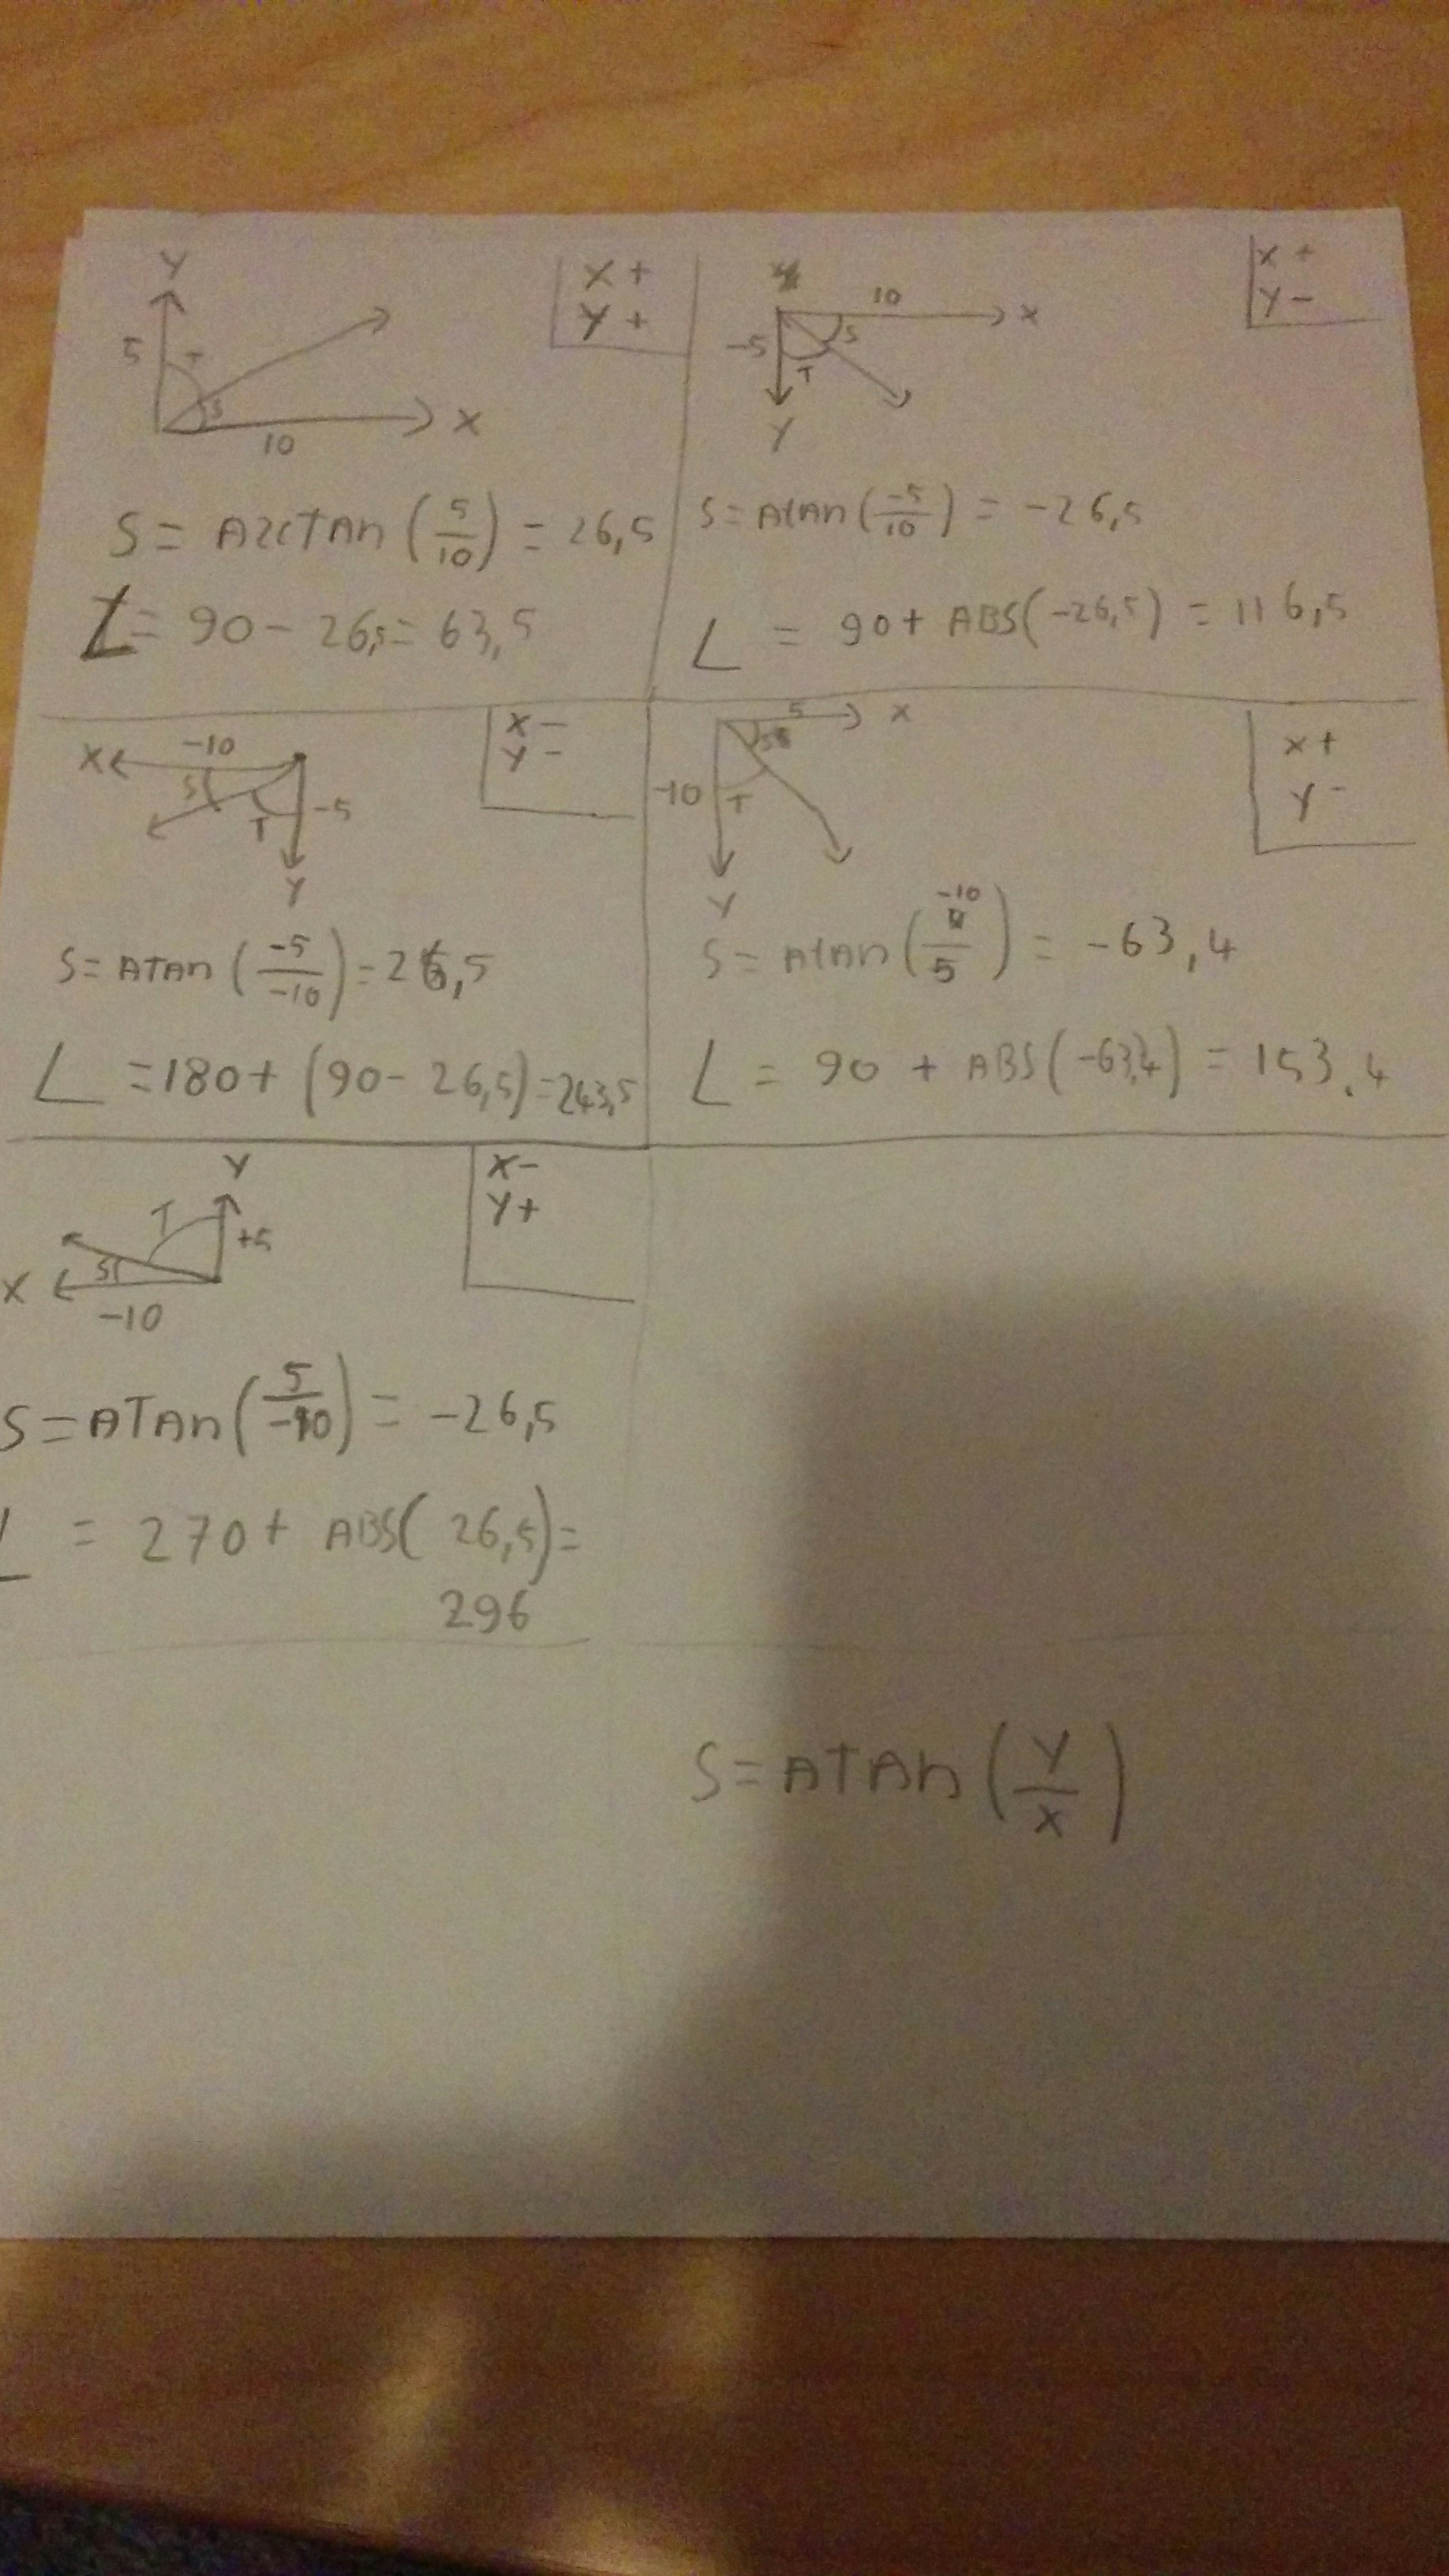 Y
5
T
S
10
X
X +
Y +
S = ARCTAN (5/10) = 26,5
∠ = 90 - 26,5 = 63,5
10
X
-5
S
T
Y
X +
Y -
S = ATAN (-5/10) = -26,5
∠ = 90 + ABS(-26,5) = 116,5
X
-10
S
T
-5
Y
X -
Y -
S = ATAN (-5/-10) = 26,5
∠ = 180 + (90 - 26,5) = 243,5
5
X
S
-10
T
Y
X +
Y -
S = ATAN (-10/5) = -63,4
∠ = 90 + ABS(-63,4) = 153.4
Y
T
+5
S
X
-10
X -
Y +
S = ATAN (5/-10) = -26,5
∠ = 270 + ABS( 26,5) =
296
S = ATAN (Y/X)